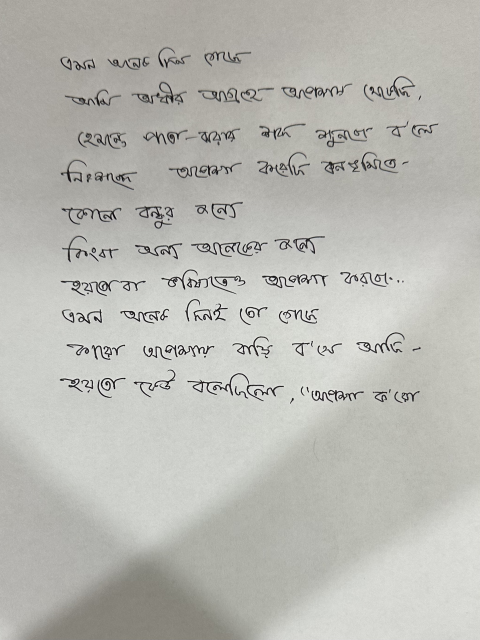 এমন অনেক দিন গেছে
আমি অধীর আগ্রহে অপেক্ষায় থেকেছি,
হেমন্তে পাতা-ঝরার শব্দ শুনবো ব'লে
নিঃশব্দে অপেক্ষা করেছি বনভূমিতে-
কোনো বন্ধুর জন্যে
কিংবা অন্য অনেকের জন্যে
হয়তো বা ভবিষ্যতেও অপেক্ষা করবো...
এমন অনেক দিনই তো গেছে
কারো অপেক্ষায় বাড়ি ব'সে আছি-
হয়তো কেউ বলেছিলো, "অপেক্ষা ক'রো